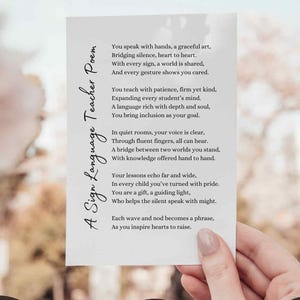 A Sign Language Teacher Poem
You speak with hands, a graceful art,
Bridging silence, heart to heart.
With every sign, a world is shared,
And every gesture shows you cared.
You teach with patience, firm yet kind,
Expanding every student's mind.
A language rich with depth and soul,
You bring inclusion as your goal.
In quiet rooms, your voice is clear,
Through fluent fingers, all can hear.
A bridge between two worlds you stand,
With knowledge offered hand to hand.
Your lessons echo far and wide,
In every child you've turned with pride.
You are a gift, a guiding light,
Who helps the silent speak with might.
Each wave and nod becomes a phrase,
As you inspire hearts to raise.